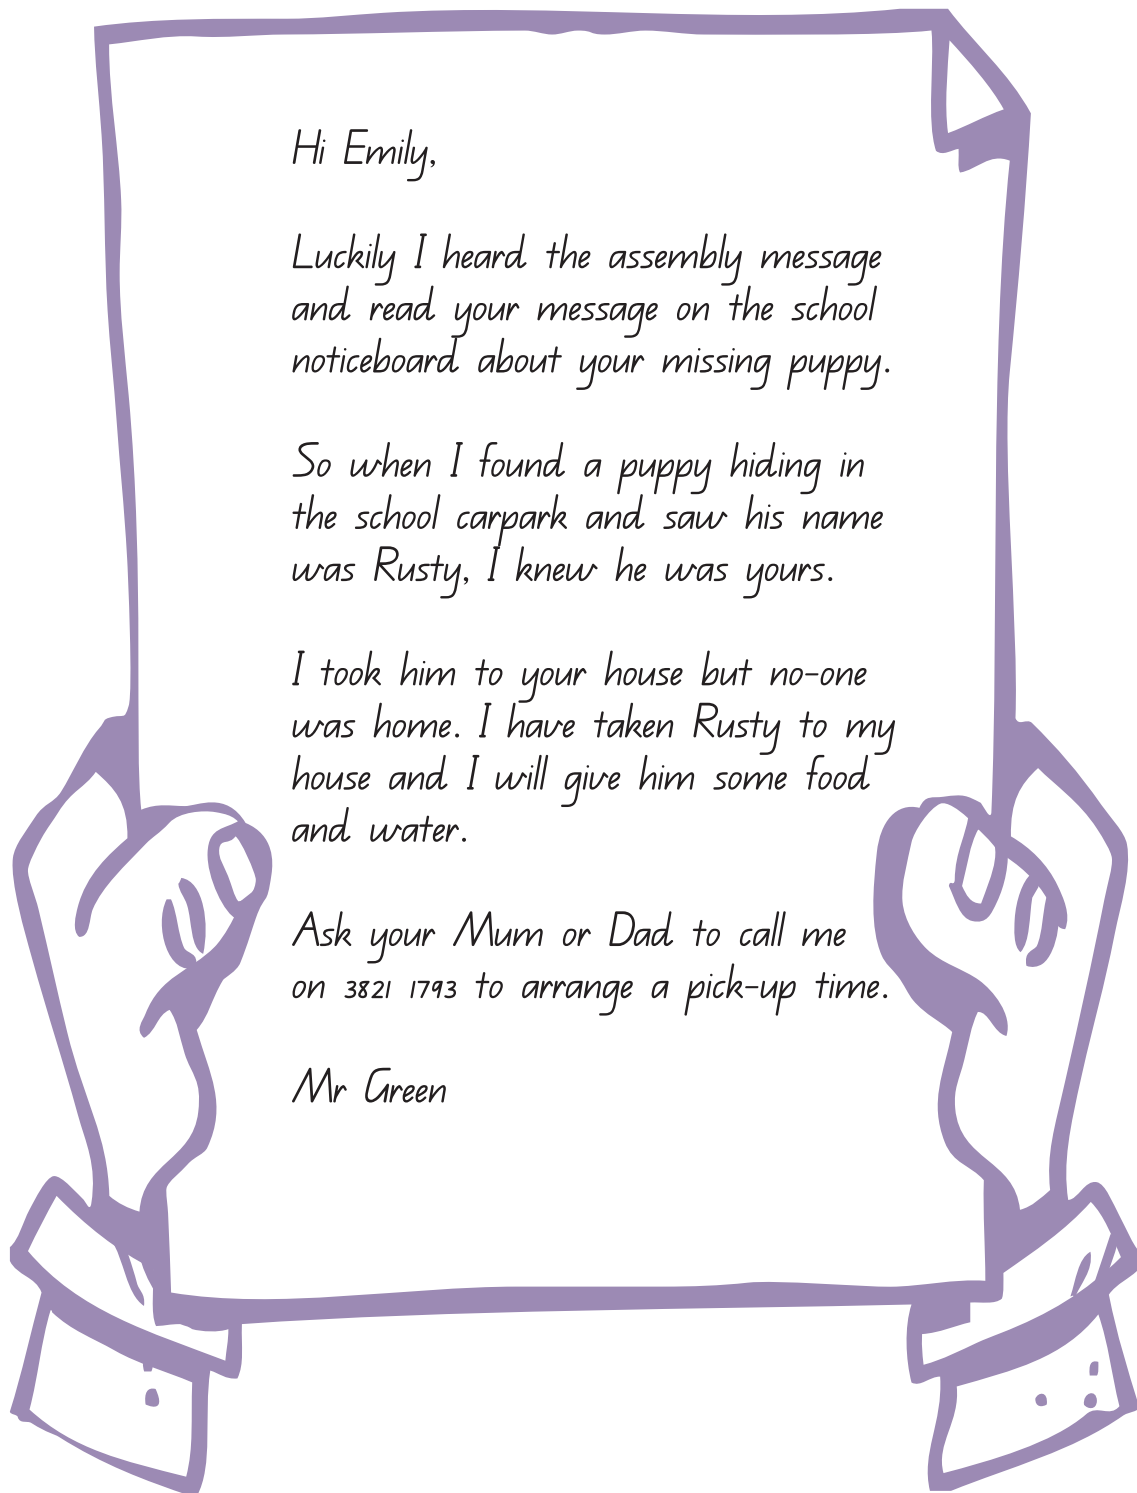 Hi Emily,
Luckily I heard the assembly message
and read your message on the school
noticeboard about your missing puppy.
So when I found a puppy hiding in
the school carpark and saw his name
was Rusty, I knew he was yours.
I took him to your house but no-one
was home. I have taken Rusty to my
house and I will give him some food
and water.
Ask your Mum or Dad to call me
on 3821 1793 to arrange a pick-up time.
Mr Green